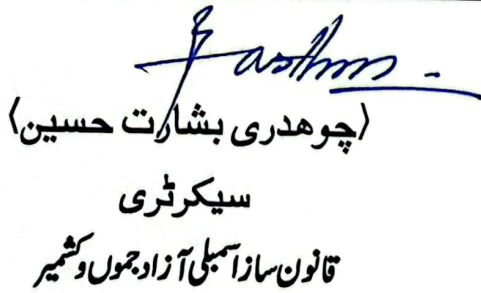 (چوھدری بشارت حسین)
سیکرٹری
قانون ساز اسمبلی آزاد جموں و کشمیر